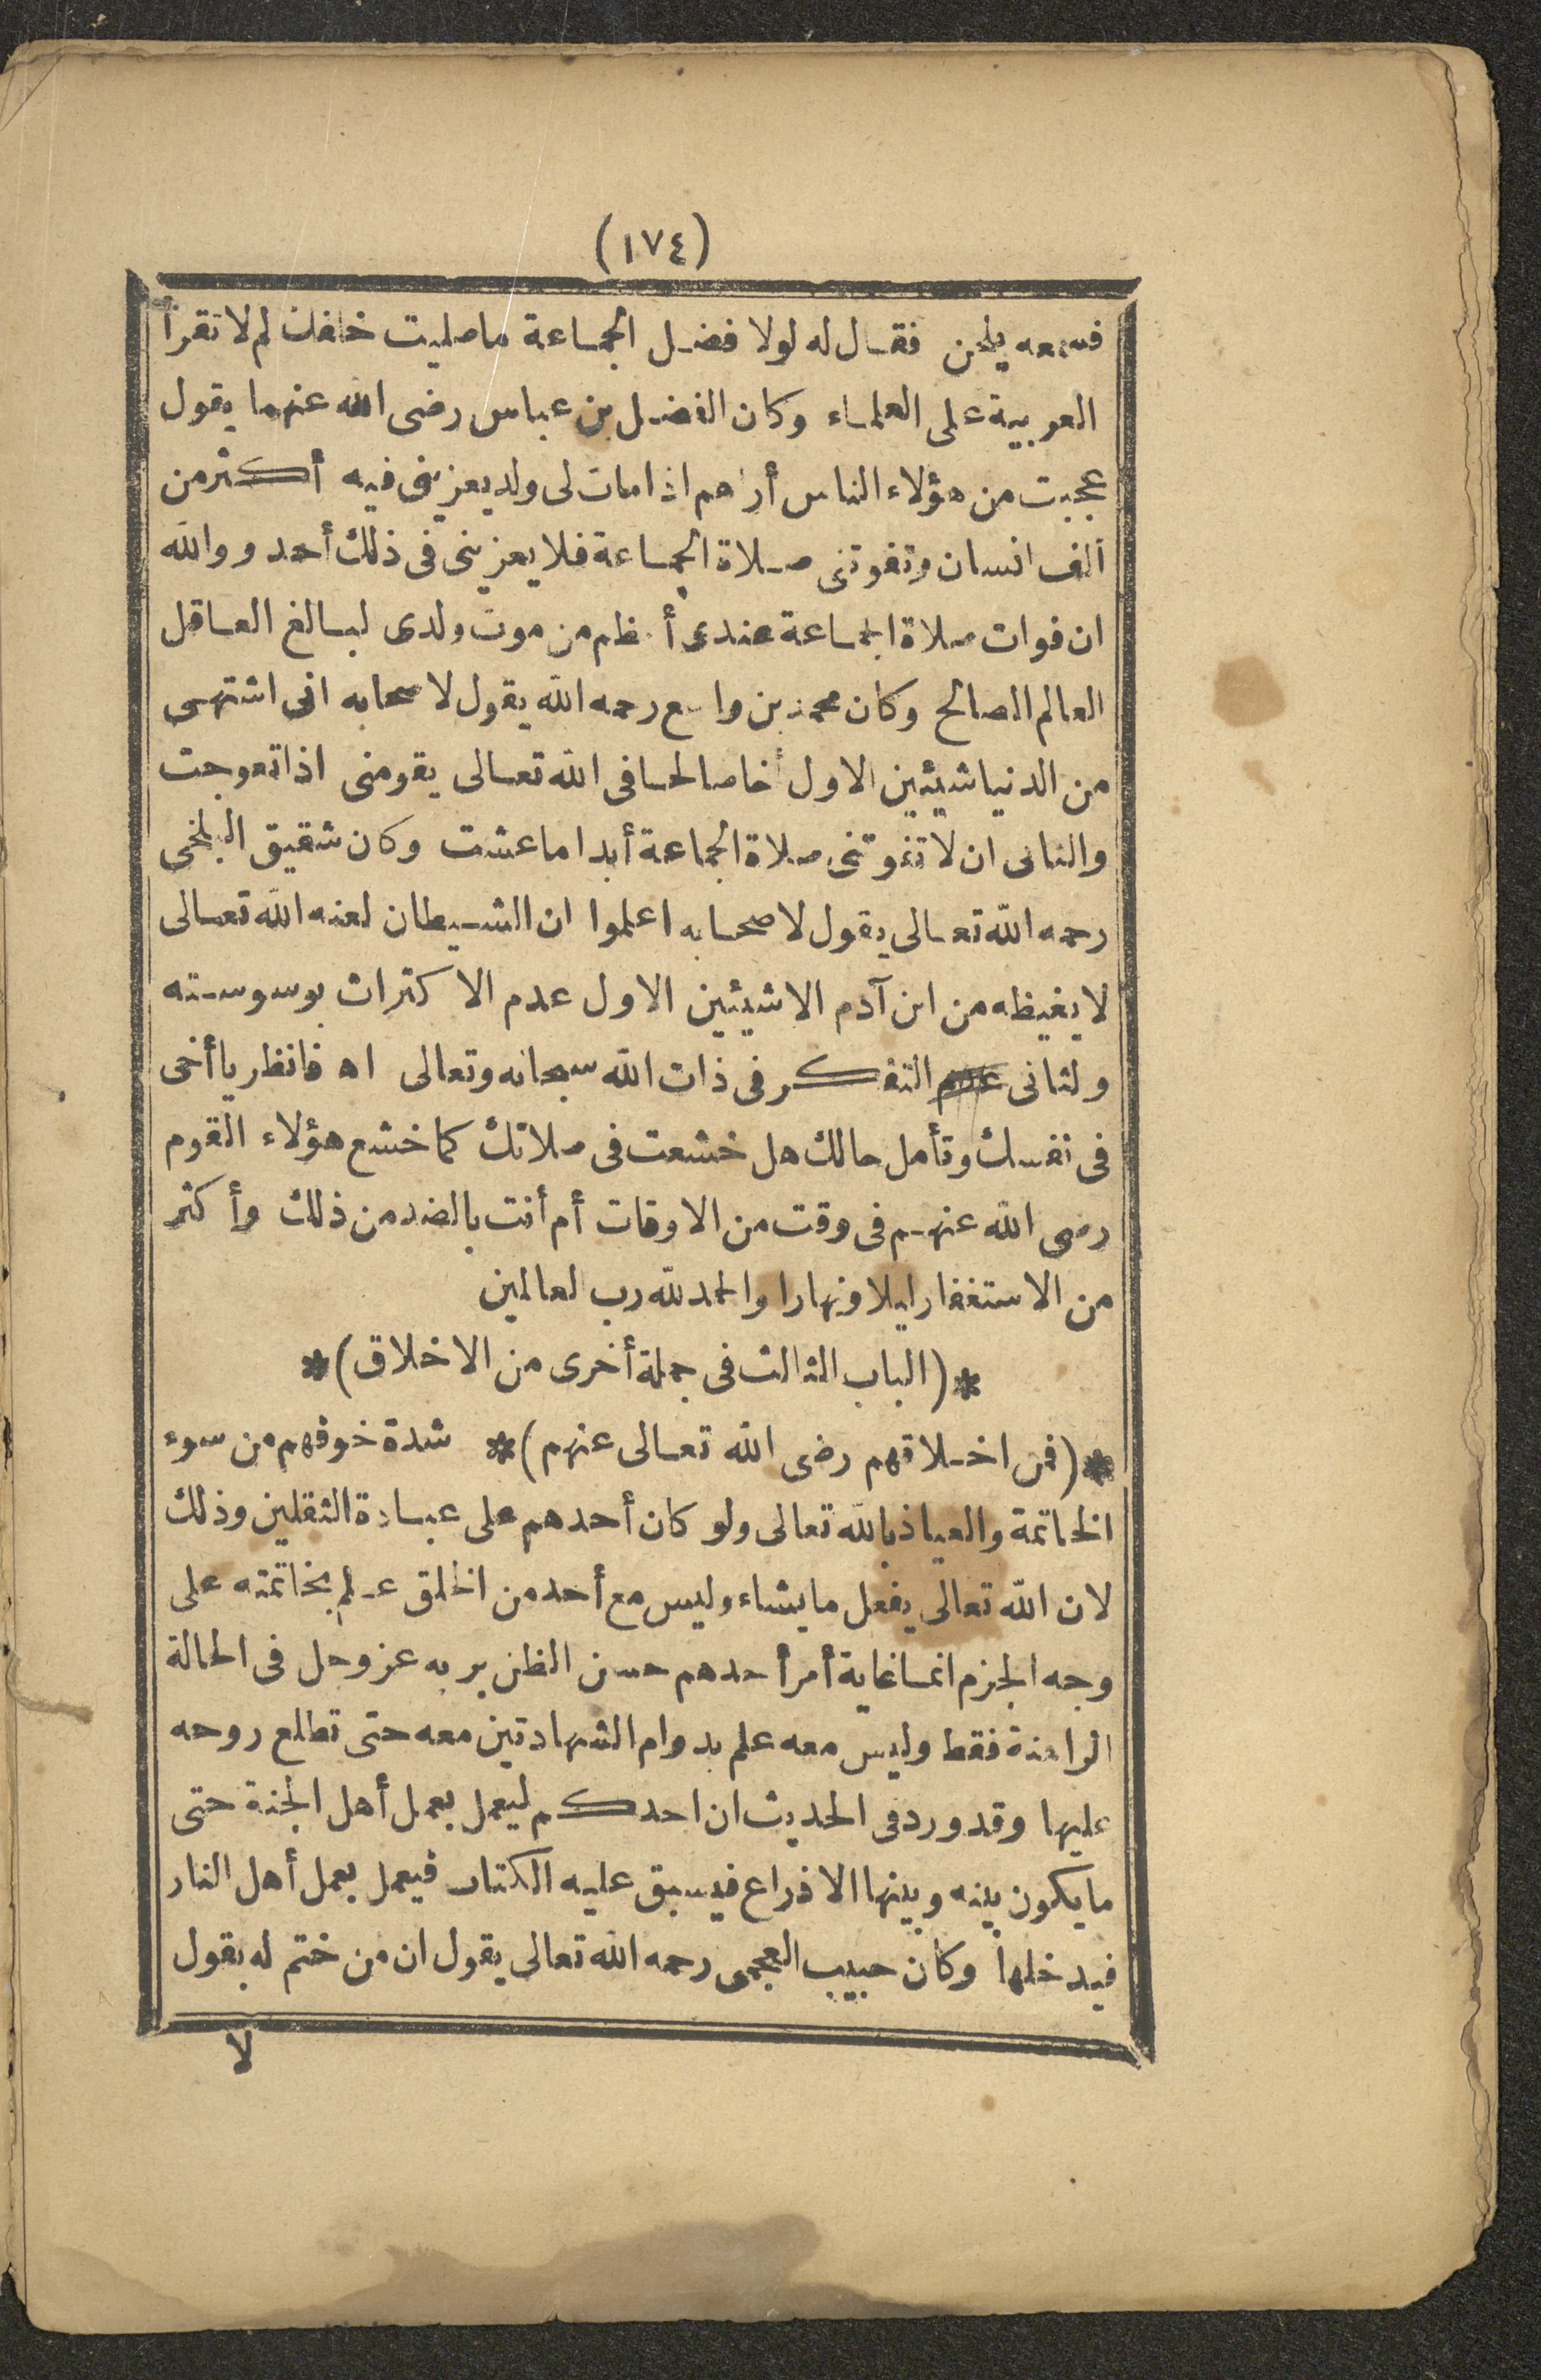 (١٧٤)
فسمعه يلحن فقال له لولا فضل الجماعة ما صليت خلفك لم لا تقرأ
العربية على العلماء وكان الفضل بن عباس رضى الله عنهما يقول
عجبت من هؤلاء الناس أراهم اذا مات لى ولد يعزينى فيه أكثر من
ألف انسان وتفوتنى صلاة الجماعة فلا يعزينى فى ذلك أحد ووالله
ان فوات صلاة الجماعة عندى أعظم من موت ولدى لبالغ العاقل
العالم الصالح وكان محمد بن واسع رحمه الله يقول لاصحابه انى اشتهى
من الدنيا شيئين الاول أخا صالحا فى الله تعالى يقومنى اذا تعوجت
والثانى ان لا تفوتنى صلاة الجماعة أبدا ما عشت وكان شقيق البلخى
رحمه الله تعالى يقول لاصحابه اعلموا ان الشيطان لعنه الله تعالى
لا يغيظه من ابن آدم الا شيئين الاول عدم الاكتراث بوسوسته
ولثانى عدم التفكر فى ذات الله سبحانه وتعالى اه فانظر يا أخى
فى نفسك وتأمل حالك هل خشعت فى صلاتك كما خشع هؤلاء القوم
رضى الله عنهم فى وقت من الاوقات أم أنت بالضد من ذلك وأكثر
من الاستغفار ليلا ونهارا والحمد لله رب لعالمين
*(الباب الثالث فى جملة أخرى من الاخلاق)*
*(فمن اخلاقهم رضى الله تعالى عنهم)* شدة خوفهم من سوء
الخاتمة والعياذ بالله تعالى ولو كان أحدهم على عبادة الثقلين وذلك
لان الله تعالى يفعل ما يشاء وليس مع أحد من الخلق علم بخاتمته على
وجه الجزم انما غاية أمر أحدهم حسن الظن بربه عز وجل فى الحالة
الراهنة فقط وليس معه علم بدوام الشهادتين معه حتى تطلع روحه
عليها وقد ورد فى الحديث ان احدكم ليعمل بعمل أهل الجنة حتى
ما يكون بينه وبينها الا ذراع فيسبق عليه الكتاب فيعمل بعمل أهل النار
فيدخلها وكان حبيب العجمى رحمه الله تعالى يقول ان من ختم له بقول
لا